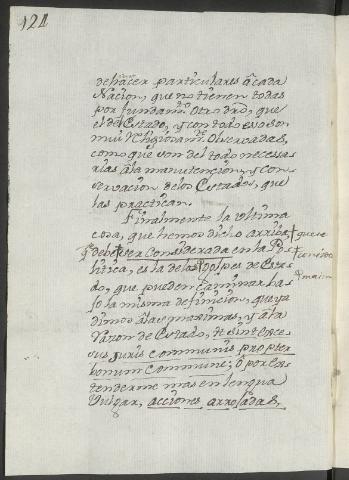 124
de hàcer particulares à cada
Nacion, que no tienen todas
por fundam.to Otro dro, que
el del Estado, y con todo esso son
mui Religiosam.te Observadas,
como que son del todo necessa
rias à la manutencion, y con
servacion de los Estados, que
las practican.
Finalmente la ultima
cosa, que hemos dicho arriba,
q.e debe ser Considerada en la Po
litica, es la de los Golpes de Esta
do, que pueden Caminar bas
so la misma definicion, que ya
dimos à las maximas, y à la
Razon de Estado, ut sint exces
sus juris communis propter
bonum Commune; ò por ex
tenderme mas en lengua
Vulgar, acciones arrojadas,